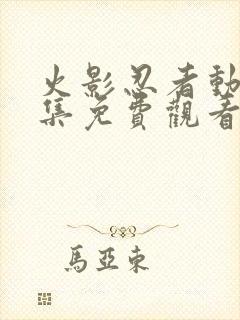 火影忍者動
集免費觀看
馬亞東